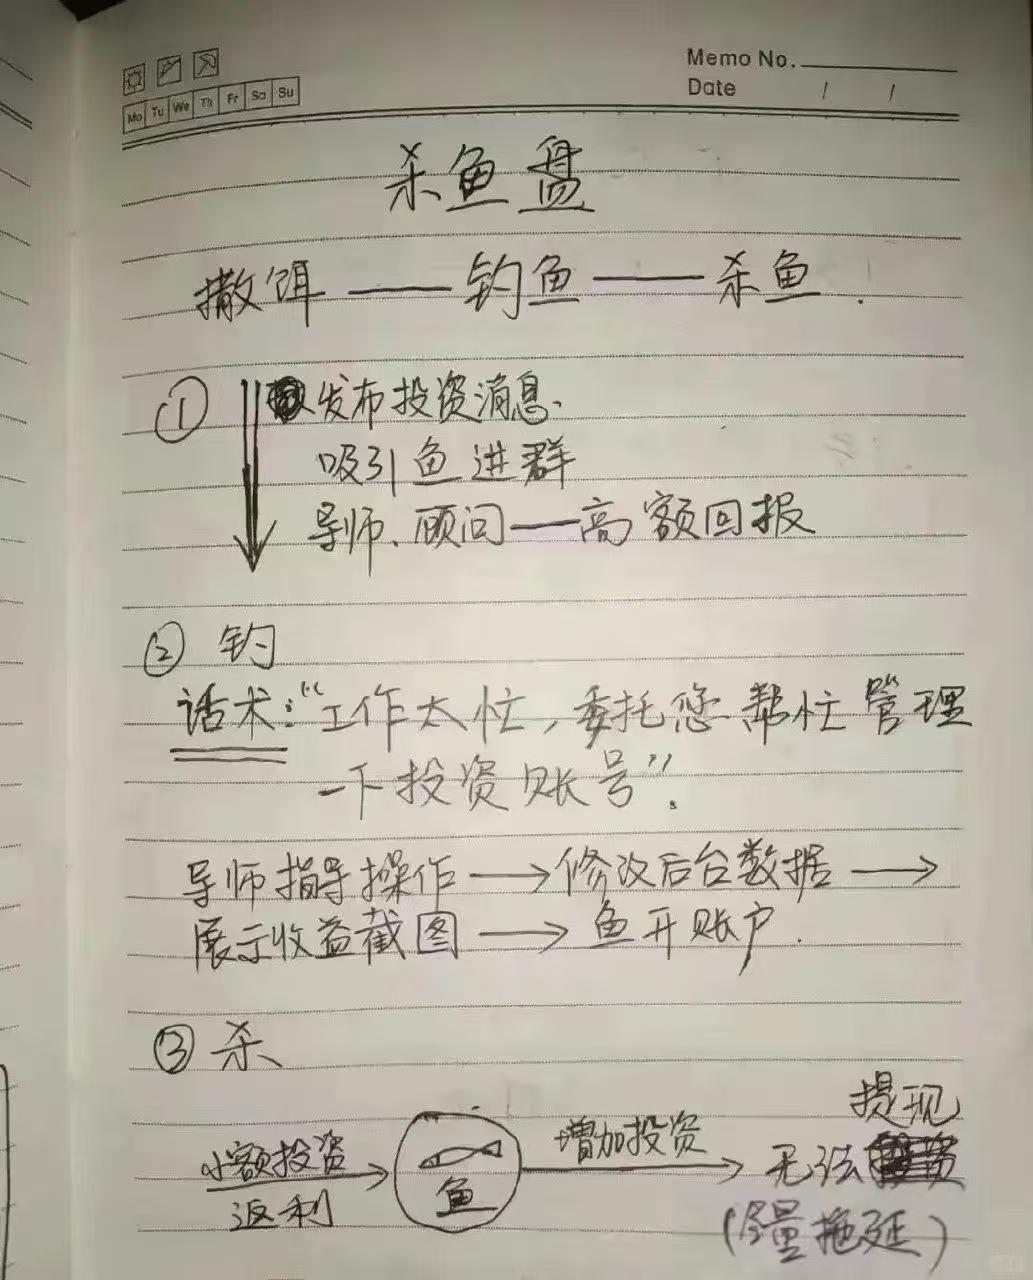 Memo No.
Date / /
Mo Tu We Th Fr Sa Su
杀鱼盘
撒饵——钓鱼——杀鱼.
① 发布投资消息.
吸引鱼进群
导师、顾问——高额回报
② 钓
话术:“工作太忙,委托您帮忙管理
一下投资账号”.
导师指导操作→修改后台数据→
展示收益截图→鱼开账户.
③ 杀
小额投资
返利
鱼
增加投资
提现
无法
(尽量拖延)